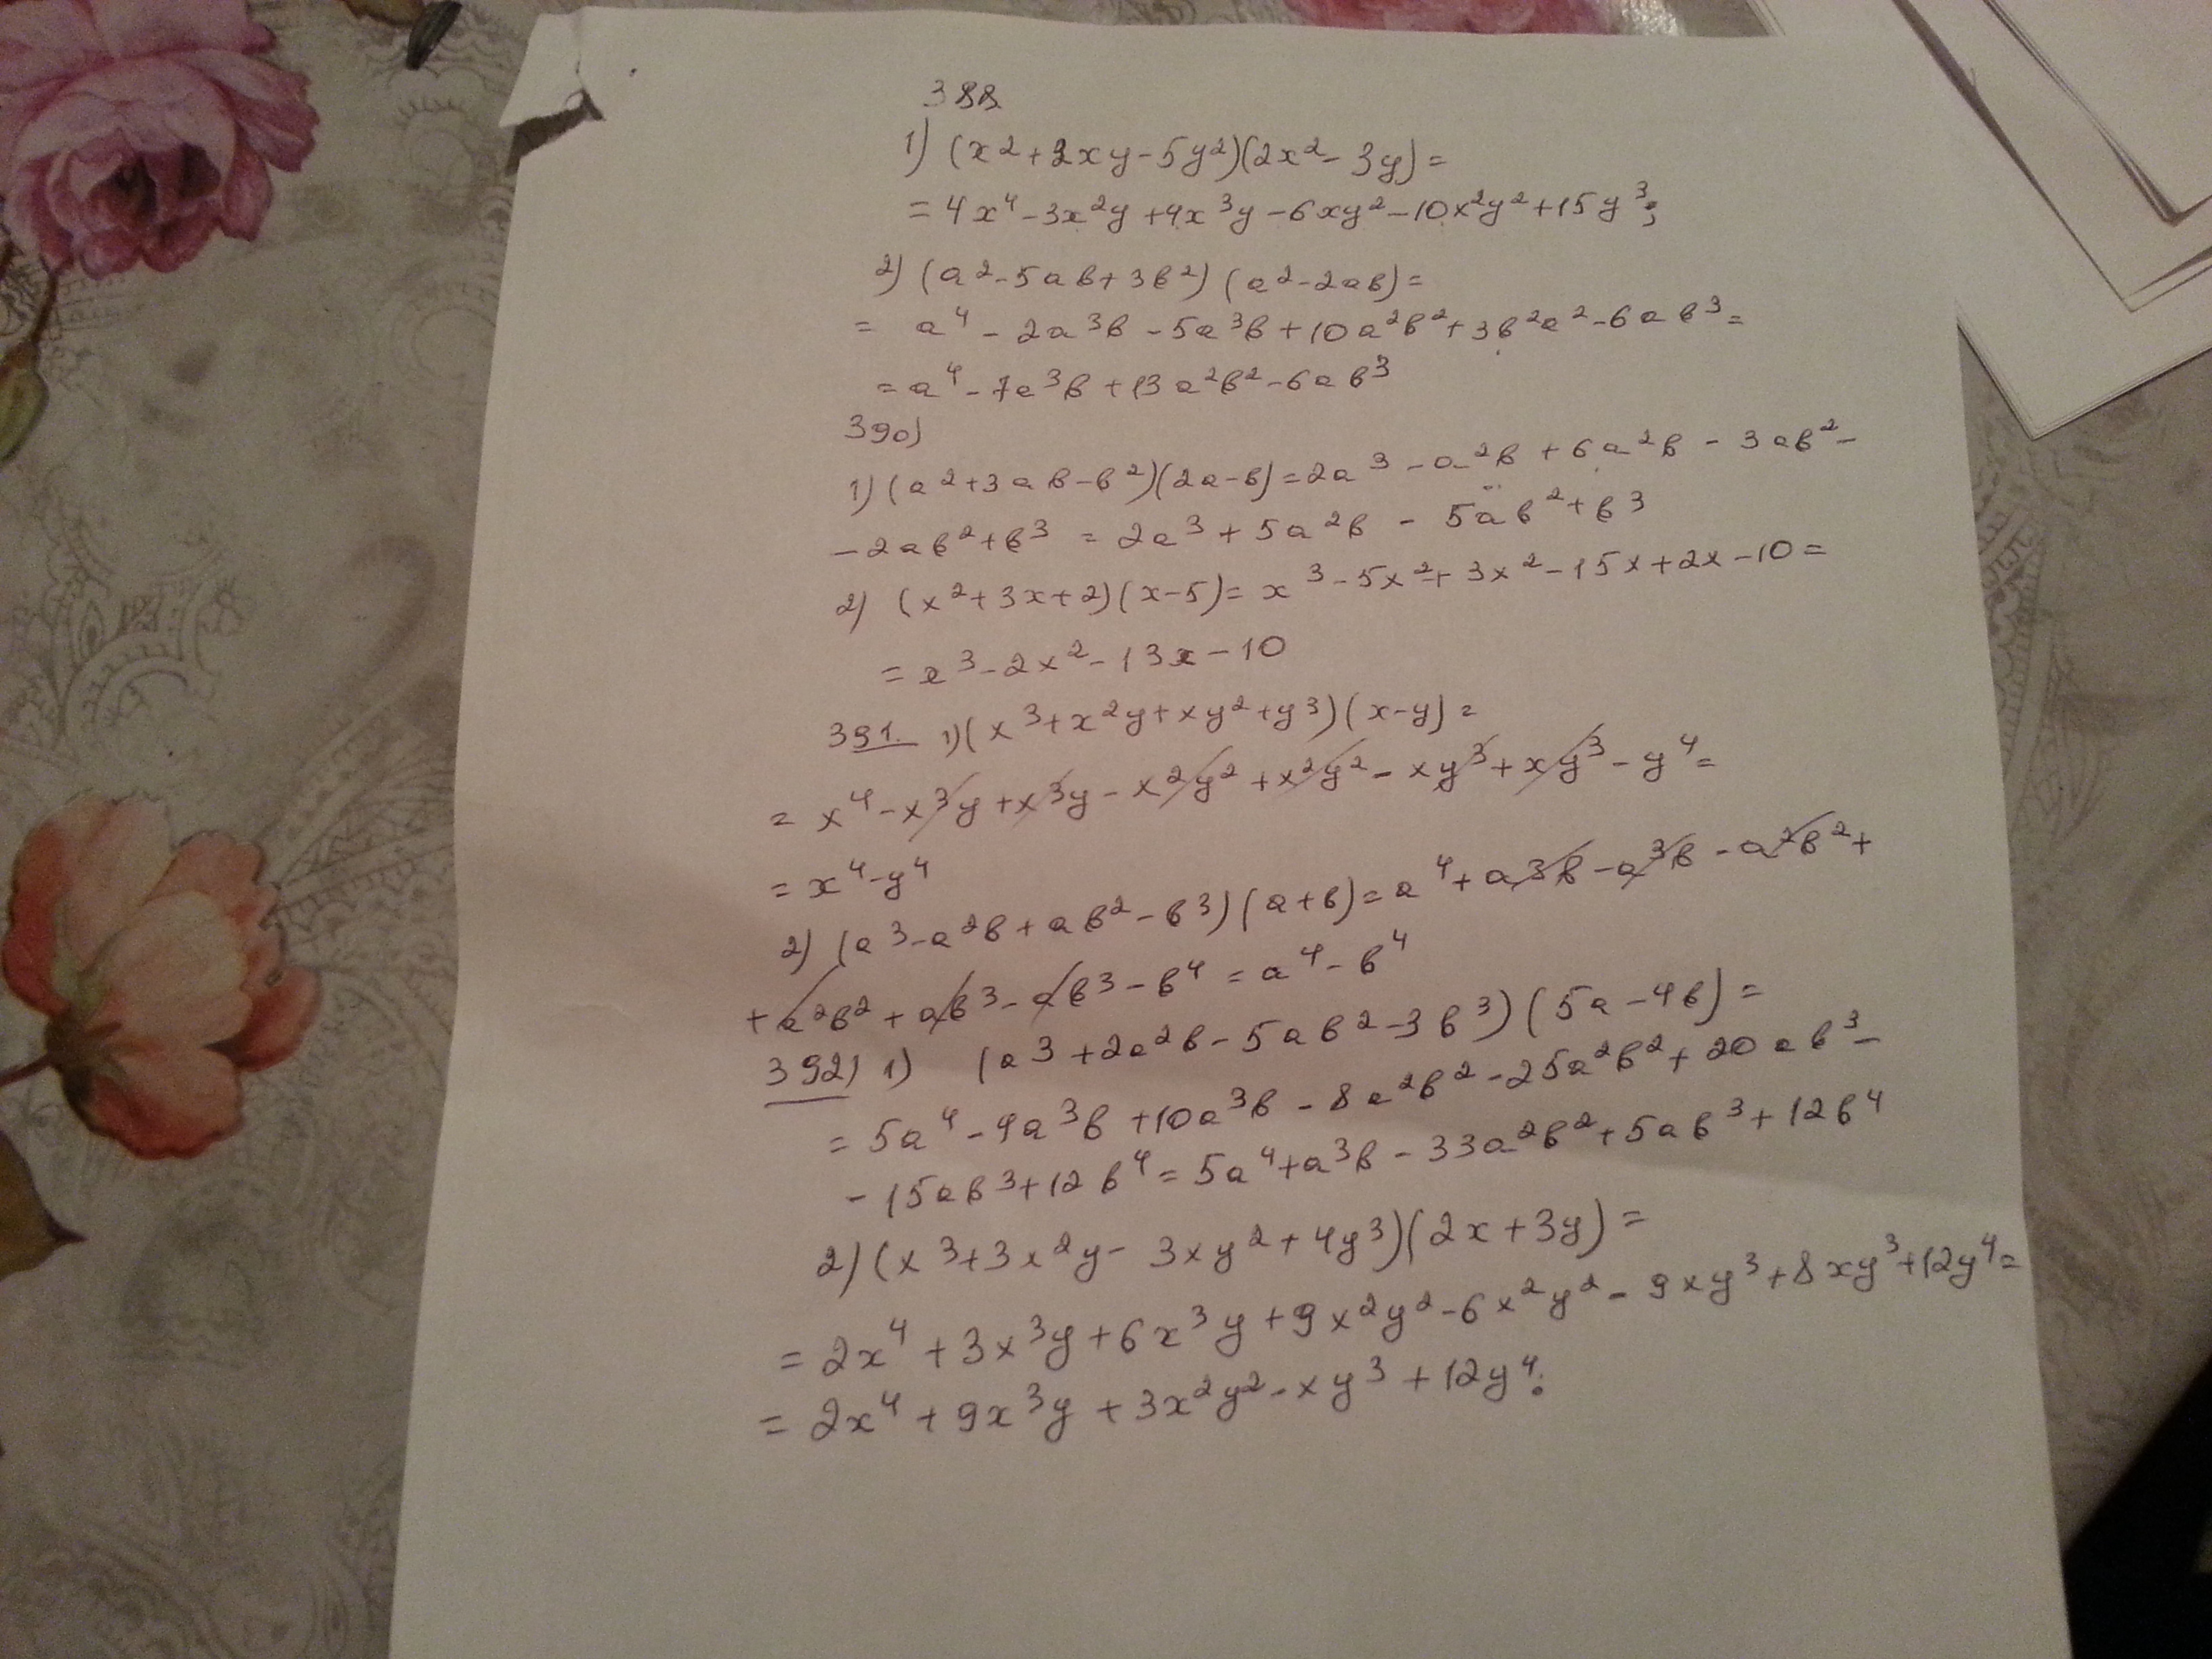 388
1) (x² + 2xy - 5y²)(2x² - 3y) =
= 4x⁴ - 3x²y + 4x³y - 6xy² - 10x²y² + 15y³;
2) (a² - 5ab + 3b²) (a² - 2ab) =
= a⁴ - 2a³b - 5a³b + 10a²b² + 3b²a² - 6ab³ =
= a⁴ - 7a³b + 13a²b² - 6ab³
390)
1) (a² + 3ab - b²)(2a - b) = 2a³ - a²b + 6a²b - 3ab² -
- 2ab² + b³ = 2a³ + 5a²b - 5ab² + b³
2) (x² + 3x + 2)(x - 5) = x³ - 5x² + 3x² - 15x + 2x - 10 =
= x³ - 2x² - 13x - 10
391. 1) (x³ + x²y + xy² + y³)(x - y) =
= x⁴ - x³y + x³y - x²y² + x²y² - xy³ + xy³ - y⁴ =
= x⁴ - y⁴
2) (a³ - a²b + ab² - b³)(a + b) = a⁴ + a³b - a³b - a²b² +
+ a²b² + ab³ - ab³ - b⁴ = a⁴ - b⁴
392) 1) (a³ + 2a²b - 5ab² - 3b³)(5a - 4b) =
= 5a⁴ - 9a³b + 10a³b - 8a²b² - 25a²b² + 20ab³ -
- 15ab³ + 12b⁴ = 5a⁴ + a³b - 33a²b² + 5ab³ + 12b⁴
2) (x³ + 3x²y - 3xy² + 4y³)(2x + 3y) =
= 2x⁴ + 3x³y + 6x³y + 9x²y² - 6x²y² - 9xy³ + 8xy³ + 12y⁴ =
= 2x⁴ + 9x³y + 3x²y² - xy³ + 12y⁴.